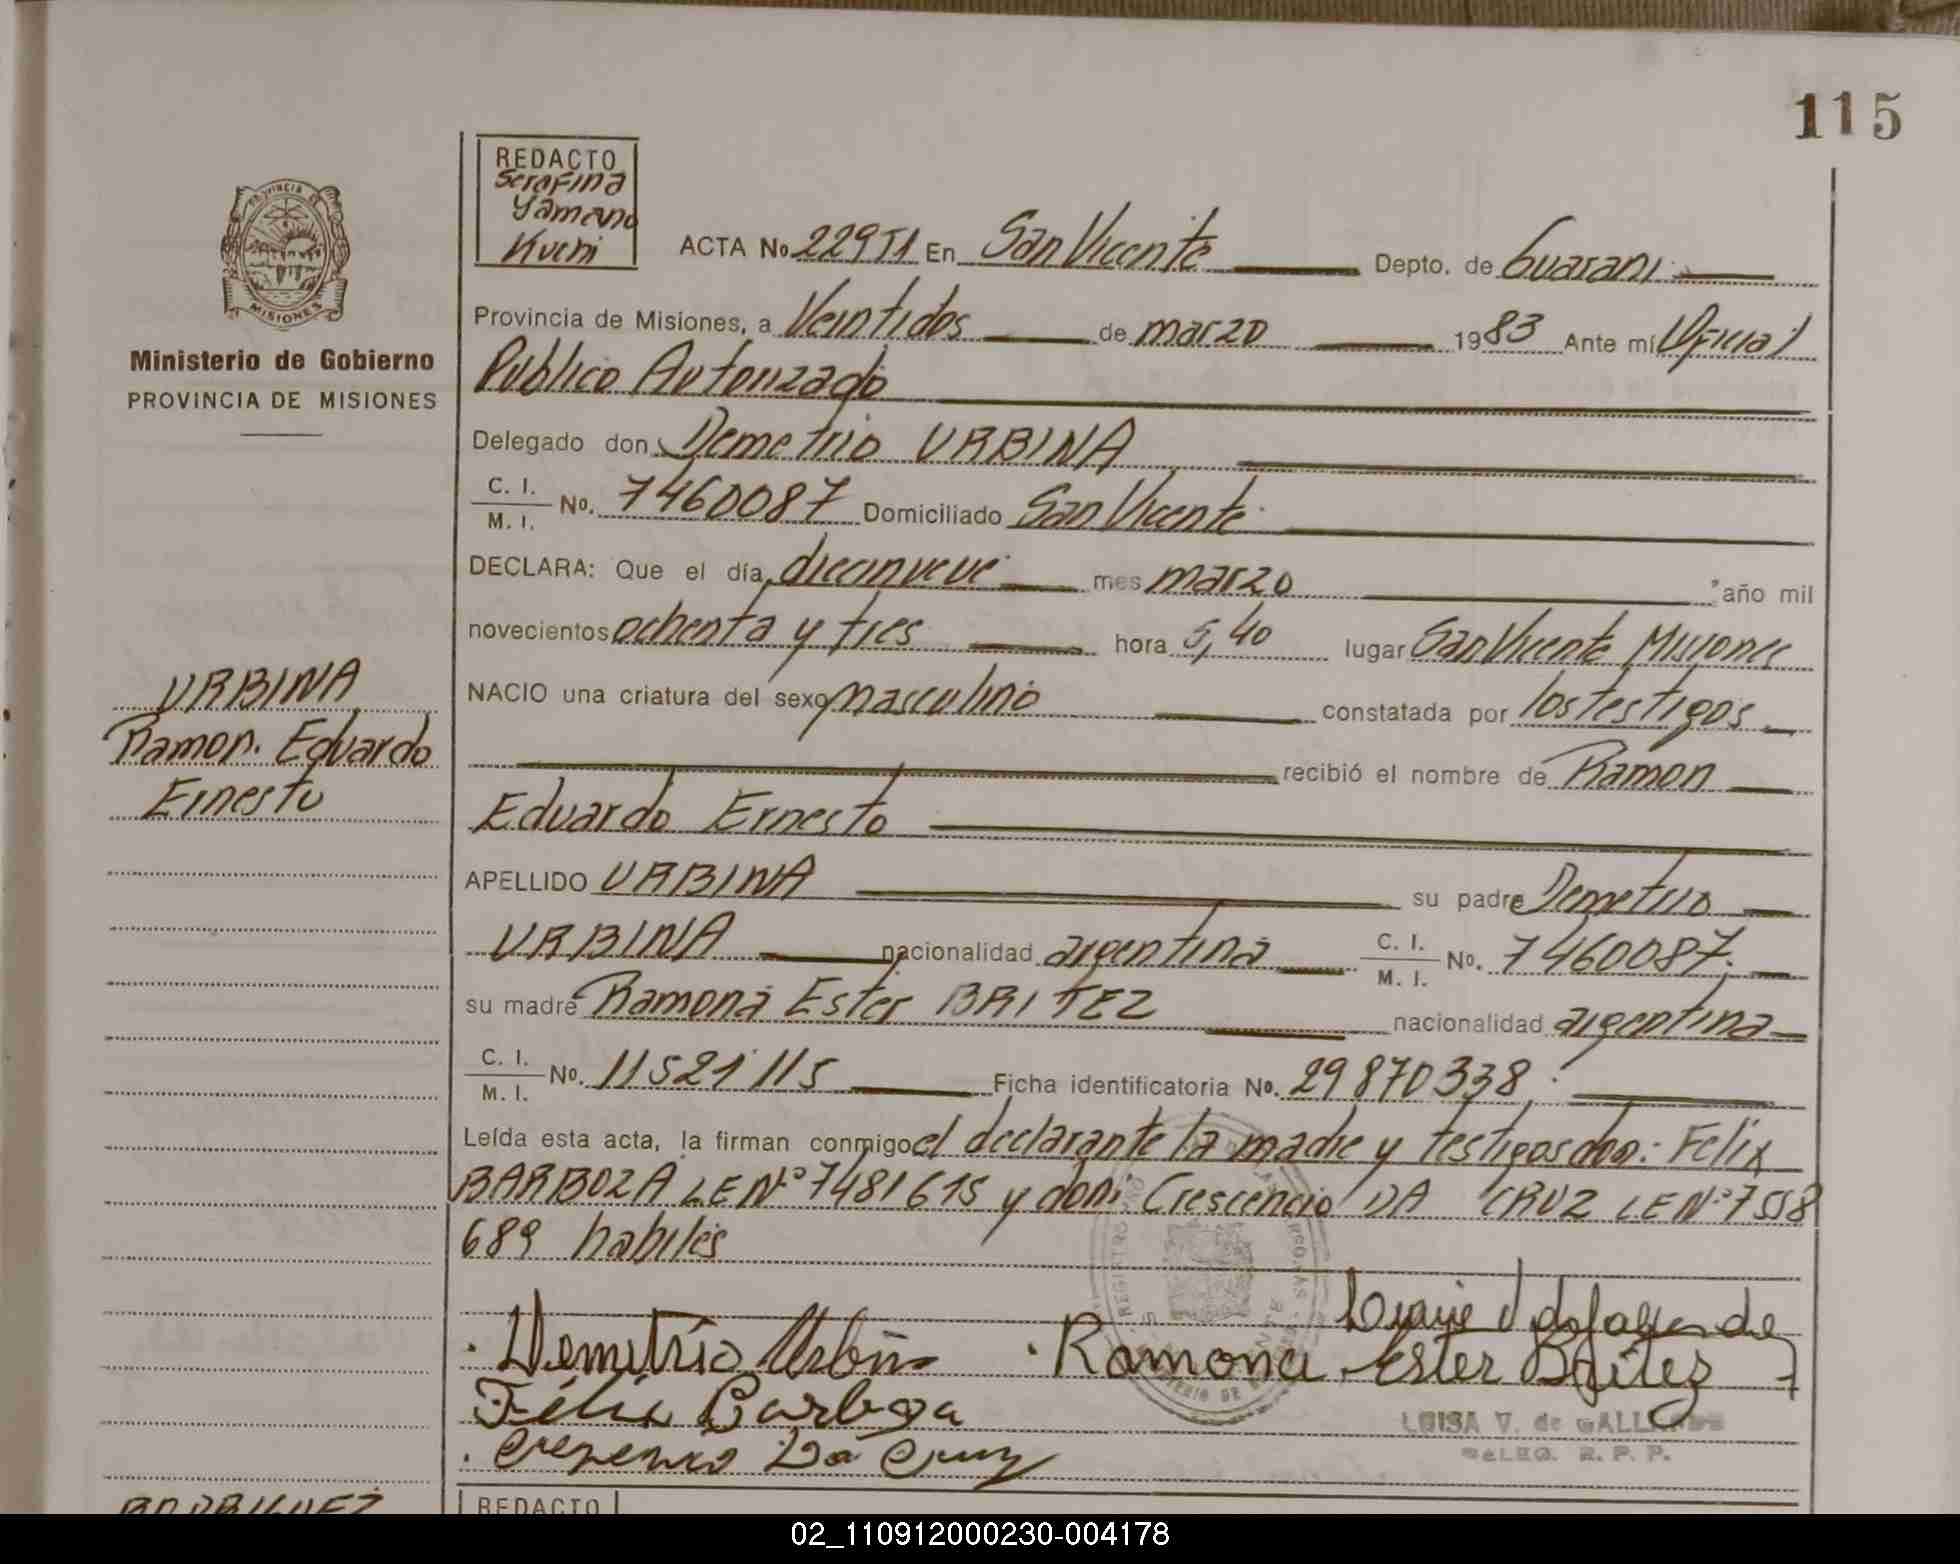 115
REDACTO
Serafina
Yamano
Kuchi
PROVINCIA DE
MISIONES
Ministerio de Gobierno
PROVINCIA DE MISIONES
ACTA No 229T1 En San Vicente Depto. de Guarani
Provincia de Misiones, a Veintidos de marzo 1983 Ante mí Oficial
Publico Autorizado
Delegado don Demetrio URBINA
C. I.
M. I. No. 7460087 Domiciliado San Vicente
DECLARA: Que el día diecinueve mes marzo año mil
novecientos ochenta y tres hora 5,40 lugar San Vicente Misiones
NACIO una criatura del sexo masculino constatada por los testigos
recibió el nombre de Ramon
Eduardo Ernesto
URBINA
Ramon. Eduardo
Ernesto
APELLIDO URBINA su padre Demetrio
URBINA nacionalidad argentina C. I. M. I. No. 7460087.
su madre Ramona Ester BRITEZ nacionalidad argentina
C. I.
M. I. No. 11521115 Ficha identificatoria No. 29870338
Leída esta acta, la firman conmigo el declarante la madre y testigos don: Felix
BARBOZA LE Nº 7481615 y don: Crescencio DA CRUZ LE Nº 7558
689 habiles
Demetrio Urbina Ramona Ester Britez
Félix Barboza
Crescencio Da Cruz
LUISA V. de GALLARDO
DELEG. R. P. P.
RODRIGUEZ
REDACTO
02_110912000230-004178